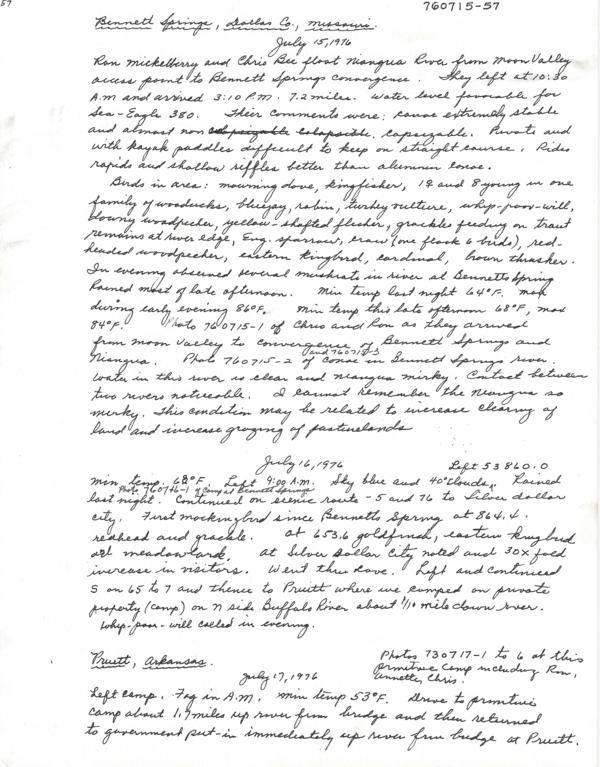 57
760715-57
Bennett Springs, Dallas Co., Missouri.
July 15, 1976
Ron Mickelberry and Chris Bee float Niangua River from Moon Valley
access point to Bennett Springs convergence. They left at 10:30
A.M and arrived 3:10 P.M. 7.2 miles. Water level favorable for
Sea-Eagle 380. Their comments were: canoe extremely stable
and almost non capsizable. Private and
with kayak paddles difficult to keep on straight course. Rides
rapids and shallow riffles better than alumnum canoe.
Birds in area: mourning dove, kingfisher, 1♀ and 8 young in one
family of woodducks, bluejay, robin, turkey vulture, whip-poor-will,
downy woodpecker, yellow-shafted flicker, grackles feeding on trout
remains at river edge, Eng. sparrow, crow (one flock 6 birds), red-
headed woodpecker, eastern kingbird, cardinal, brown thrasher.
In evening observed several muskrats in river at Bennetts Spring
Rained most of late afternoon. Min temp last night 64°F. max
during early evening 86°F. Min temp this late afternoon 68°F, max
84°F. Photo 760715-1 of Chris and Ron as they arrived
from Moon Valley to convergence of Bennett Springs and
Niangua. Photo 760715-2 and 760715-3 of canoe in Bennett Springs river.
Water in this river is clear and niangua mirky. Contact between
two rivers noticeable. I cannot remember the Niangua so
mirky. This condition may be related to increase clearing of
land and increase grazing of pasturelands
July 16, 1976 Left 53860.0
Min. temp. 62°F. Left 9:00 A.M. Sky blue and 40% clouds. Rained
Photo 760716-1 of Camp at Bennett Springs
last night. Continued on scenic route - 5 and 76 to Silver dollar
city. First mockingbird since Bennetts Spring at 864.4.
redhead and grackle. At 653.6 goldfinch, eastern kingbird
and meadowlark. At Silver Dollar City noted and 30x fold
increase in visitors. Went thru cave. Left and continued
S on 65 to 7 and thence to Pruitt where we camped on private
property (camp) on N side Buffalo River about 1/10 mile down river.
Whip-poor-will called in evening.
Pruitt, Arkansas.
Photos 730717-1 to 6 at this
primitive Camp including Ron,
Annette, Chris.
July 17, 1976
Left camp. Fog in A.M. Min temp 53°F. Drive to primitive
camp about 1.7 miles up river from bridge and then returned
to government put-in immediately up river from bridge at Pruitt.